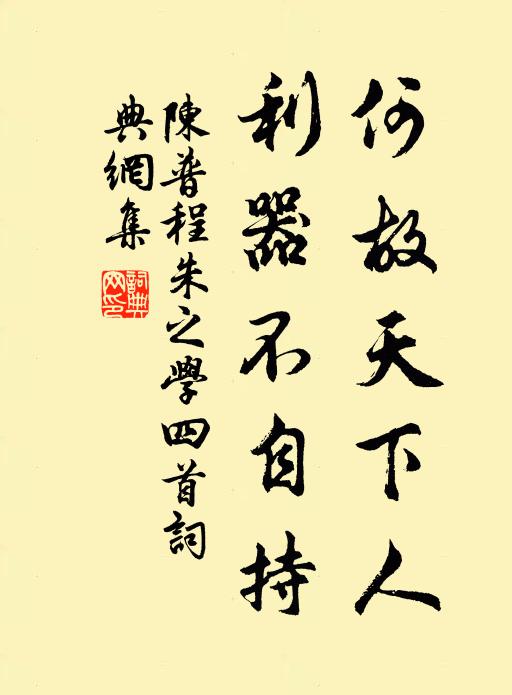 何故天下人
利器不自持
陳普程朱之學四首詞
典網集
詞典網印